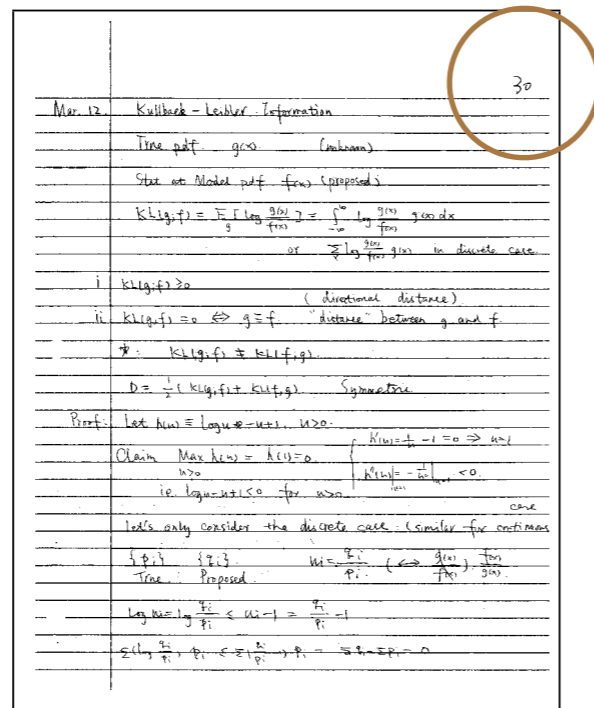 30
Mar. 12 Kullback - Leibler Information
True pdf g(x) (unknown)
Stat Model pdf f(x) (proposed)
KL(g;f) = E_g [log g(x)/f(x)] = ∫_{-∞}^{∞} log g(x)/f(x) g(x) dx
or Σ_x log g(x)/f(x) g(x) in discrete case
i KL(g;f) ≥ 0
(directional distance)
ii KL(g,f) = 0 ⇔ g ≡ f. "distance" between g and f.
*: KL(g;f) ≠ KL(f,g).
D = 1/2 ( KL(g,f) + KL(f,g) Symmetric
Proof: Let h(u) ≡ log u - u + 1, u > 0.
h'(u) = 1/u - 1 = 0 ⇒ u = 1
Claim Max_{u>0} h(u) = h(1) = 0.
h''(u)|_{u=1} = -1/u²|_{u=1} < 0.
i.e. log u - u + 1 ≤ 0 for u > 0
case
Let's only consider the discrete case. (similar for continuous
{pi} {qi} ui = qi/pi (⇔ g(x)/f(x)). f(x)/g(x).
True Proposed
log ui = log qi/pi ≤ ui - 1 = qi/pi - 1
Σ(log qi/pi) pi ≤ Σ(qi/pi - 1) pi = Σqi - Σpi = 0